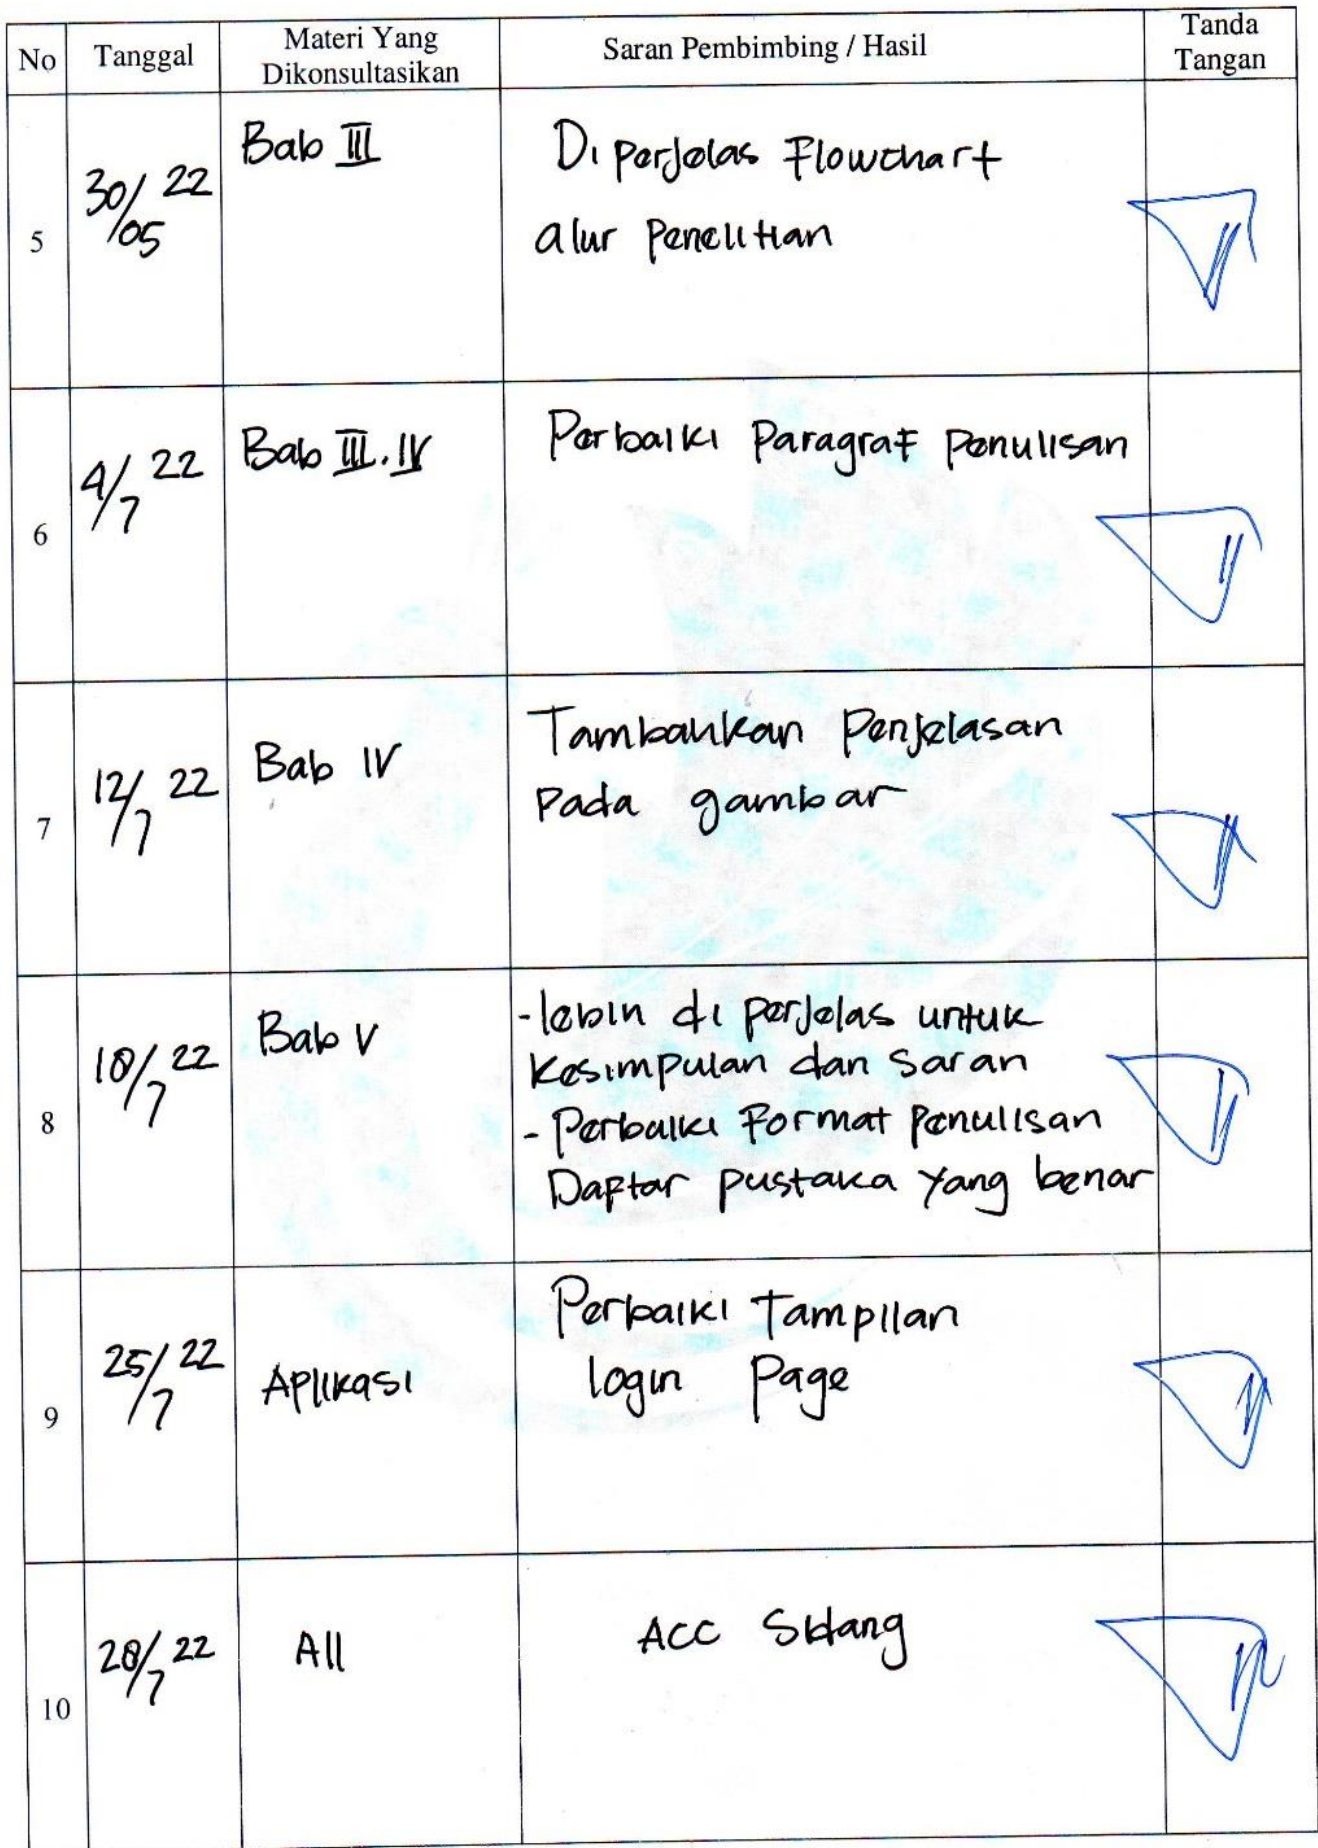 No Tanggal Materi Yang Dikonsultasikan Saran Pembimbing / Hasil Tanda Tangan
5 30/05 22 Bab III Di perjelas Flowchart
alur Penelitian
6 4/7 22 Bab III.IV Perbaiki Paragraf Penulisan
7 12/7 22 Bab IV Tambahkan Penjelasan
Pada gambar
8 18/7 22 Bab V - lebih di perjelas untuk
Kesimpulan dan saran
- Perbaiki Format Penulisan
Daftar pustaka Yang benar
9 25/7 22 Aplikasi Perbaiki Tampilan
login Page
10 28/7 22 All Acc Sidang